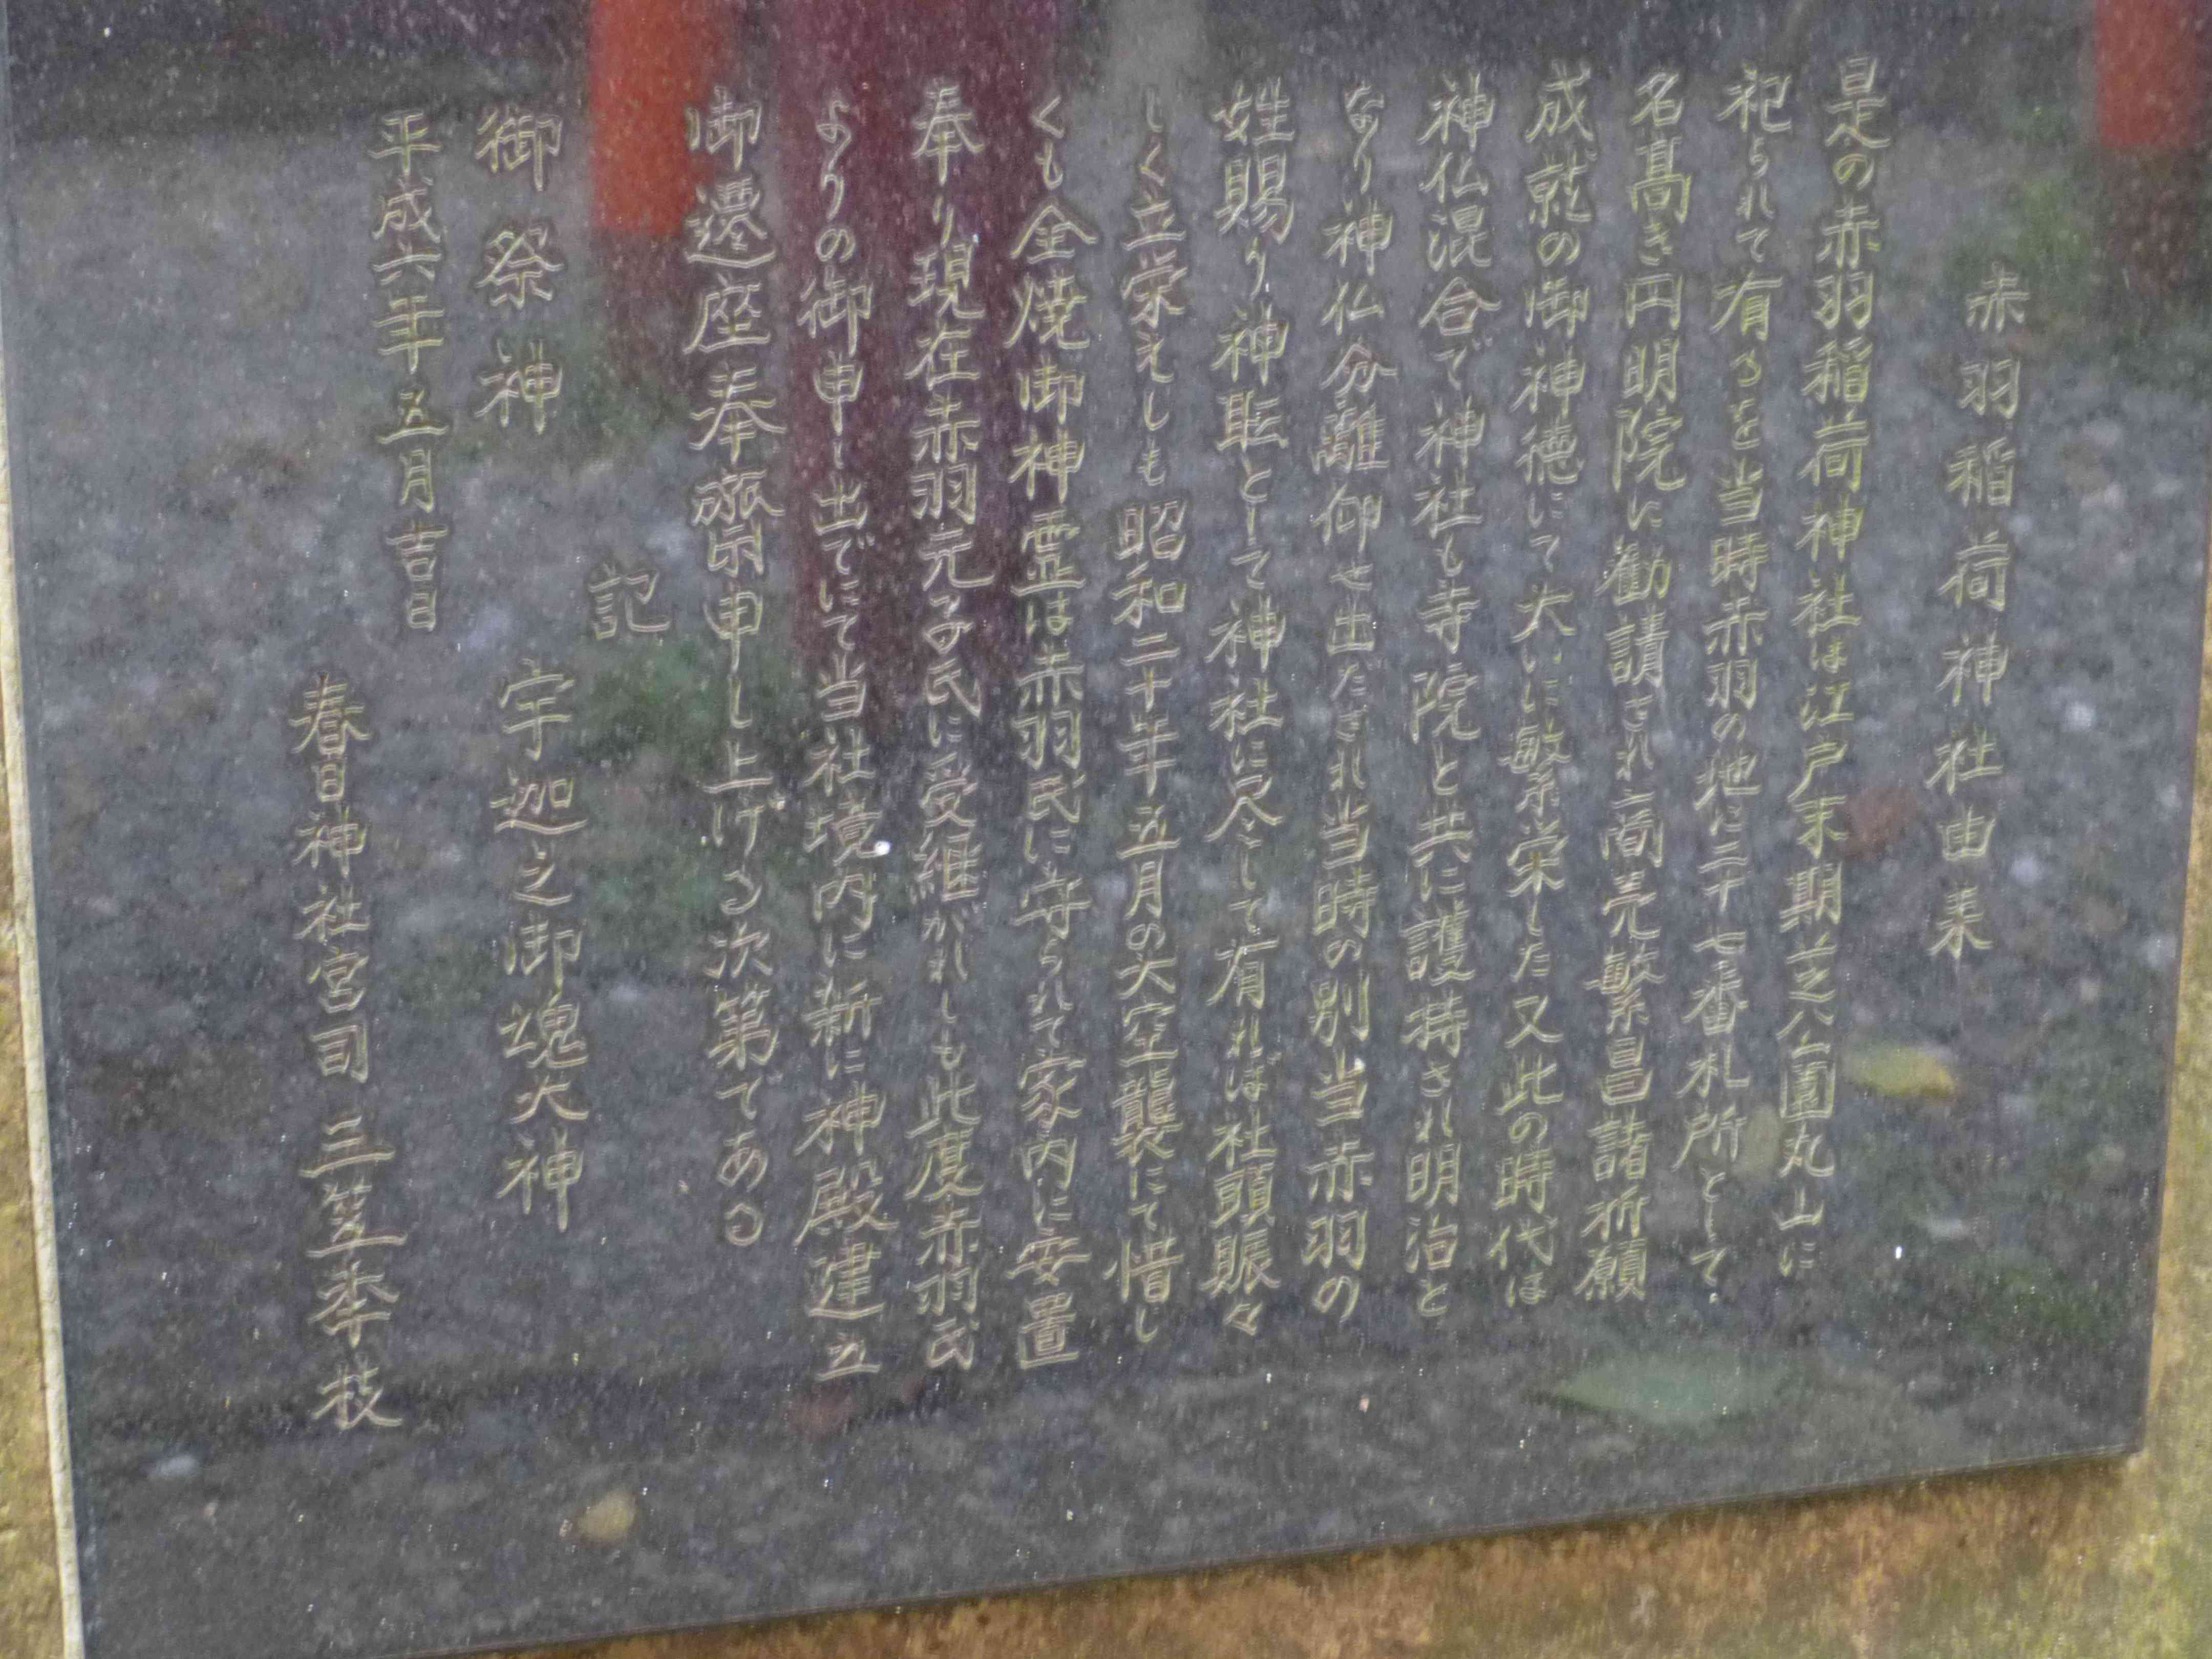 赤羽稲荷神社由来
是の赤羽稲荷神社は江戸末期芝公園丸山に
祀られて有るを当時赤羽の地に二十七番札所として
名高き円明院に勧請され商売繁昌諸祈願
成就の御神徳にて大いに繁栄した又此の時代は
神仏混合で神社も寺院と共に護持され明治と
なり神仏分離仰せ出だされ当時の別当赤羽の
姓賜り神職として神社に尽して有れば社頭賑々
しく立栄えしも昭和二十年五月の大空襲にて惜し
くも全焼御神霊は赤羽氏に守られて家内に安置
奉り現在赤羽元子氏に受継がれしも此度赤羽氏
よりの御申し出でにて当社境内に新に神殿建立
御遷座奉齋申し上げる次第である
記
御祭神 宇迦之御魂大神
平成六年五月吉日
春日神社宮司 三笠季枝